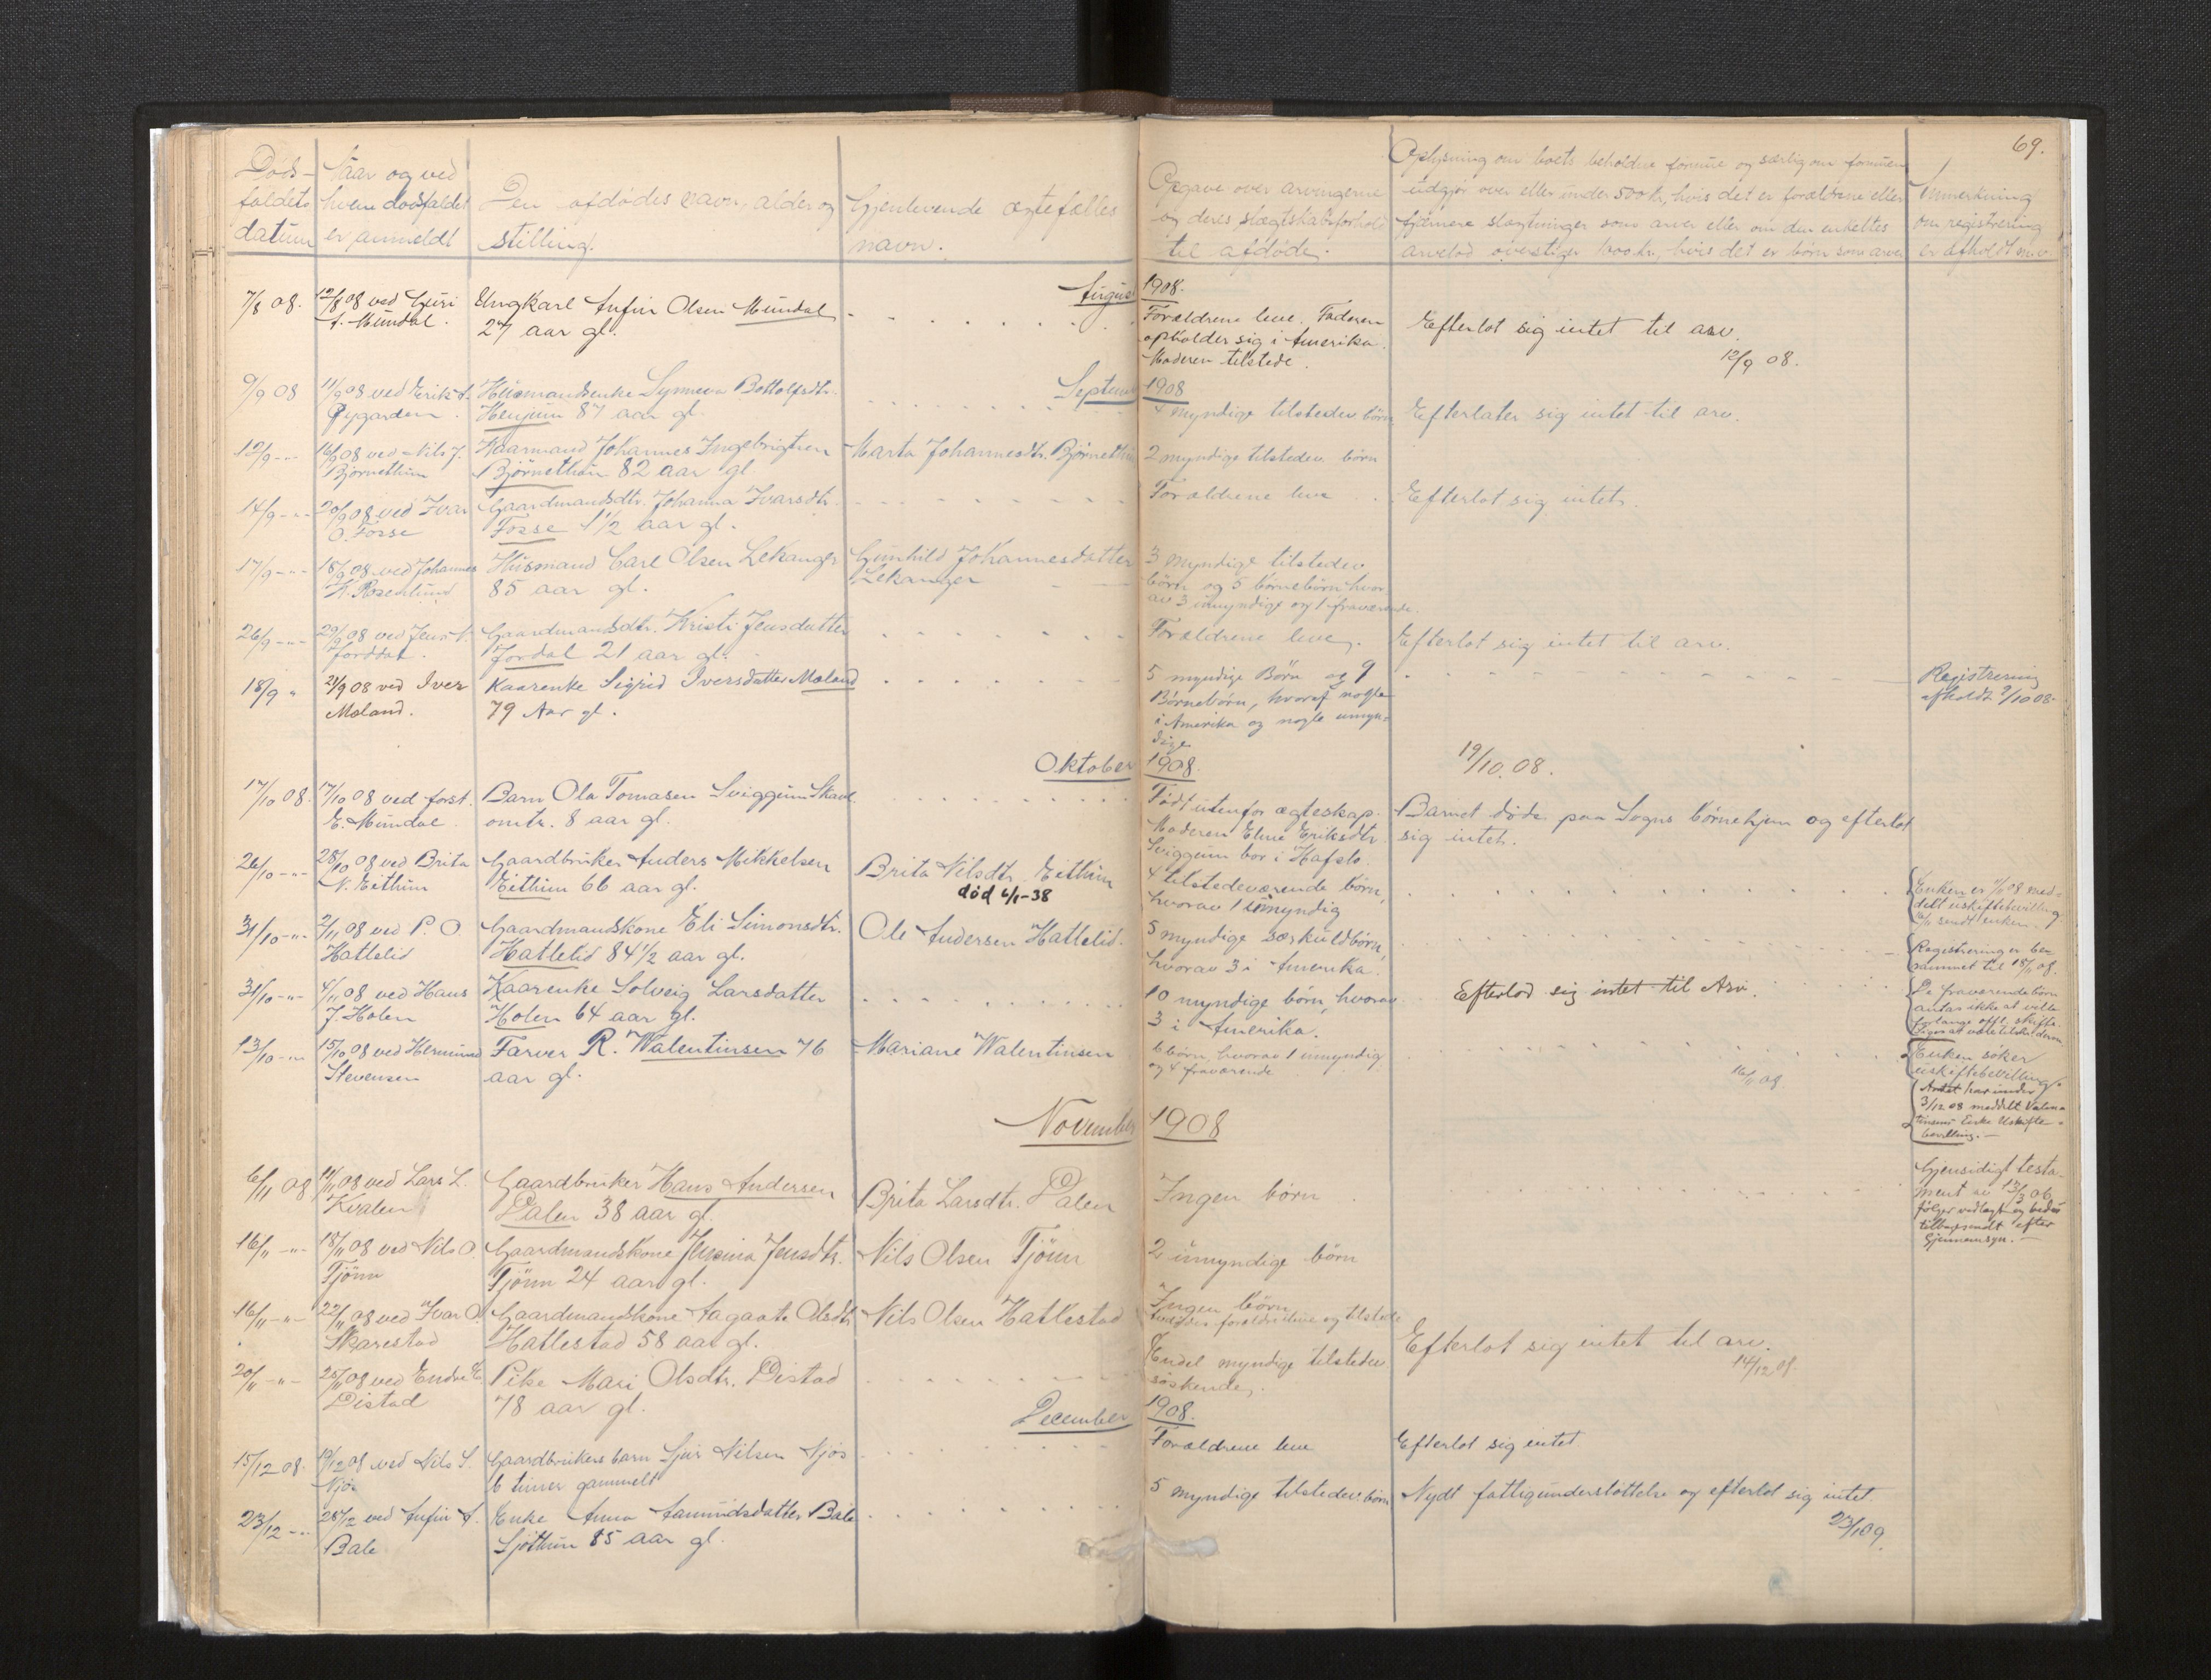 69.
Døds-
faldets
datum
Naar og ved
hvem dødsfaldet
er anmeldt
Den afdødes navn, alder og
stilling.
Gjenlevende ægtefælles
navn.
Opgave over arvingerne
og deres slægtskabsforhold
til afdøde.
Oplysning om boets beholdne formue og særlig om formuen
udgjør over eller under 500 kr, hvis det er forældrene eller
fjernere slægtninger som arver eller om den enkeltes
arvelod overstiger 1000 kr., hvis det er børn som arver
Anmerkning
om registrering
er afholdt m.v.
August 1908.
7/8 08.
12/8 08 ved Guri
A. Mundal.
Ungkarl Anfin Olsen Mundal
27 aar gl.
Forældrene leve. Faderen
opholder sig i Amerika.
Moderen tilstede.
Efterlot sig intet til arv.
12/9 08.
September 1908
9/9 08
11/9 08 ved Erik A.
Øygarden.
Husmandsenke Synneva Bottolfsdtr.
Henjum 87 aar gl.
4 myndige tilstedev børn
Efterlater sig intet til arv.
12/9 -"-
16/9 08 ved Nils J.
Bjørnethun
Kaarmand Johannes Ingebrigtsen
Bjørnethun 82 aar gl
Marta Johannesdtr. Bjørnethun
2 myndige tilstedev børn
14/9 -"-
20/9 08 ved Ivar
O. Fosse
Gaardmandsdtr. Johanna Ivarsdtr.
Fosse 1 1/2 aar gl.
Forældrene leve
Efterlot sig intet.
17/9 -"-
18/9 08 ved Johannes
K. Rosenlund
Husmand Carl Olsen Lekanger
85 aar gl.
Gunhild Johannesdatter
Lekanger
3 myndige tilstedev
børn og 5 børnebørn hvor
av 3 umyndige og 1 fraværende.
26/9 -"-
29/9 08 ved Jens A.
Jorddal.
Gaardmandsdtr. Kristi Jensdatter
Jordal 21 aar gl.
Forældrene leve.
Efterlot sig intet til arv.
18/9 "
21/9 08 ved Iver
Moland.
Kaarenke Sigrid Iversdatter Moland
79 Aar gl.
5 myndige Børn og 9
Børnebørn, hvoraf nogle
i Amerika og nogle umyn-
dige
Registrering
afholdt 9/10 08.
Oktober 1908.
19/10.08.
17/10 08.
17/10 08 ved forst.
E. Mundal
Barn Ola Tomasen Sviggum Skavl
omtr. 8 aar gl.
Født utenfor ægteskap.
Moderen Eline Eriksdtr.
Sviggum bor i Hafslo.
Barnet døde paa Sogns børnehjem og efterlot
sig intet.
26/10 -"-
28/10 08 ved Brita
N. Eithun
Gaardbruker Anders Mikkelsen
Eithun 66 aar gl.
Brita Nilsdtr. Eithun
død 6/1-38
4 tilstedeværende børn,
hvorav 1 umyndig
Enken er 11/11 08 med-
delt uskiftebevilling
16/11 sendt enken.
31/10 -"-
2/11 08 ved P. O.
Hatlelid
Gaardmandskone Eli Simonsdtr.
Hatlelid 84 1/2 aar gl.
Ole Andersen Hatlelid.
5 myndige særkuldbørn,
hvorav 3 i Amerika.
Registrering er be-
rammet til 18/11 08.
31/10 -"-
4/11 08 ved Hans
J. Holen
Kaarenke Solveig Larsdatter
Holen 64 aar gl.
10 myndige børn, hvorav
3 i Amerika.
Efterlod sig intet til Arv.
De fraværende børn
antas ikke at ville
forlange offl. skifte.
13/10 -"-
15/10 08 ved Hermund
Stevensen
Farver R. Walentinsen 76
aar gl.
Mariane Walentinsen
6 børn, hvorav 1 umyndig
og 4 fraværende
16/11 08
Enken søker
uskiftebevilling.
Amtet har under
3/12 08 meddelt Valen-
tinsens Enke Uskifte-
bevilling.-
November 1908
6/11 08
14/11 08 ved Lars L.
Kvalen
Gaardbruker Hans Andersen
Dalen 38 aar gl.
Brita Larsdtr. Dalen
Ingen børn
Gjensidigt testa-
ment av 13/3 06
følger vedlagt og bedes
tilbagesendt efter
Gjennemsyn.-
16/11 -"-
18/11 08 ved Nils O.
Tjønn
Gaardmandskone Jensina Jensdtr.
Tjønn 24 aar gl.
Nils Olsen Tjønn
2 umyndige børn
16/11 -"-
22/11 08 ved Ivar O.
Skarestad
Gaardmandskone Aagaate Olsdtr
Hatlestad 58 aar gl.
Nils Olsen Hatlestad
Ingen børn
forældre leve og tilstede
Efterlot sig intet til arv.
14/12 08.
20/11 -"-
25/11 08 ved Endre E.
Distad
Pike Mari Olsdtr. Distad
78 aar gl.
Endel myndige tilstedev
søskende.
December 1908.
15/12 08.
19/12 08 ved Nils S.
Njøs
Gaardbrukers barn Sjur Nilsen Njøs
6 timer gammelt
Forældrene leve
Efterlot sig intet
23/12 -"-
28/12 ved Anfin A.
Bale
Enke Anna Aamundsdatter Bale
Sjøthun 85 aar gl.
5 myndige tilstedev. børn
Nydt fattigunderstøttelse og efterlot sig intet.
23/1 09.